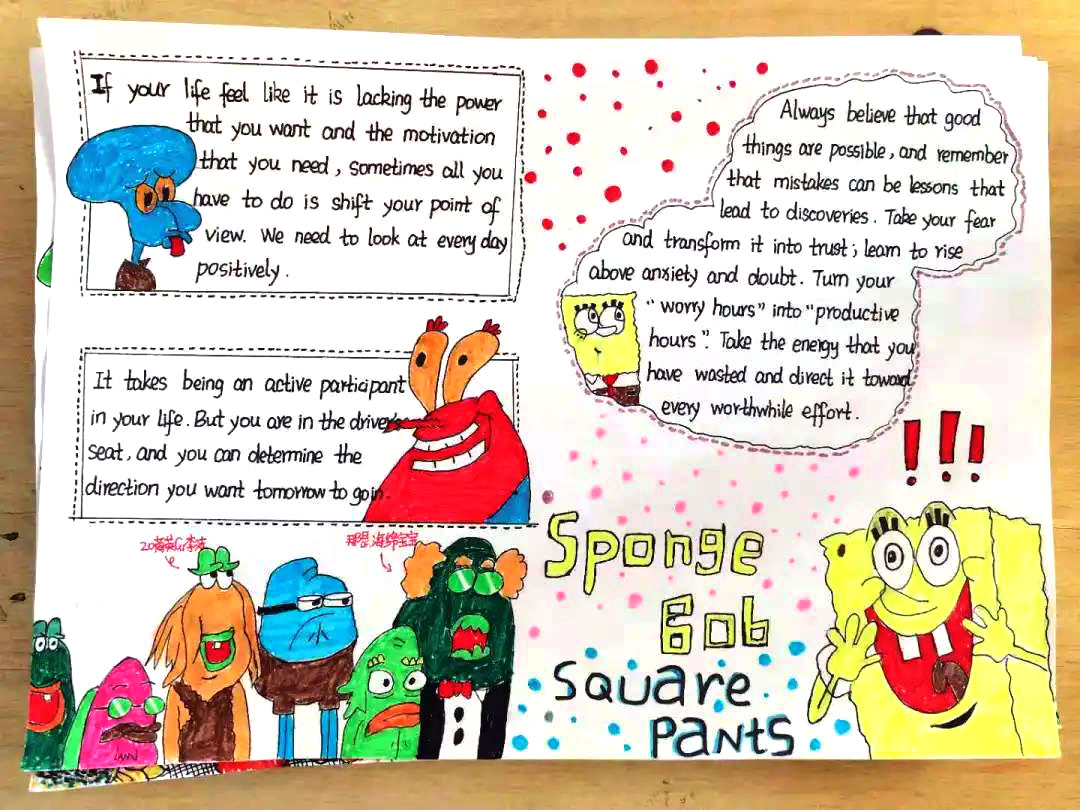 If your life feel like it is lacking the power
that you want and the motivation
that you need, sometimes all you
have to do is shift your point of
view. We need to look at every day
positively.
It takes being an active participant
in your life. But you are in the driver's
seat, and you can determine the
direction you want tomorrow to go in.
Always believe that good
things are possible, and remember
that mistakes can be lessons that
lead to discoveries. Take your fear
and transform it into trust; learn to rise
above anxiety and doubt. Turn your
"worry hours" into "productive
hours". Take the energy that you
have wasted and direct it toward
every worthwhile effort.
!!!
海绵宝宝
Sponge
Bob
Square
Pants